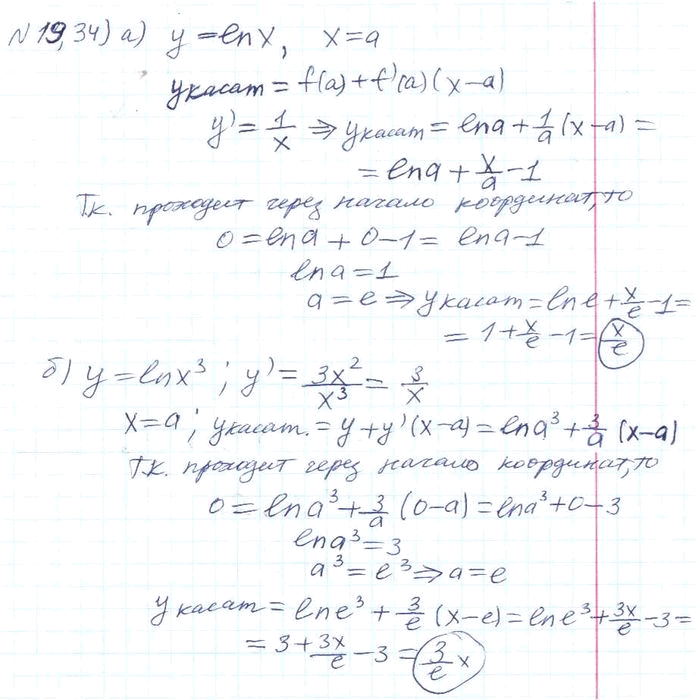 N 19,34) а) y = ln x, x = a
y касат = f(a) + f'(a)(x-a)
y' = 1/x ⇒ y касат = ln a + 1/a (x-a) =
= ln a + x/a - 1
Т.к. проходит через начало координат, то
0 = ln a + 0 - 1 = ln a - 1
ln a = 1
a = e ⇒ y касат = ln e + x/e - 1 =
= 1 + x/e - 1 = x/e
б) y = ln x³ ; y' = 3x²/x³ = 3/x
x = a ; y касат. = y + y'(x-a) = ln a³ + 3/a (x-a)
Т.к. проходит через начало координат, то
0 = ln a³ + 3/a (0-a) = ln a³ + 0 - 3
ln a³ = 3
a³ = e³ ⇒ a = e
y касат = ln e³ + 3/e (x-e) = ln e³ + 3x/e - 3 =
= 3 + 3x/e - 3 = 3/e x